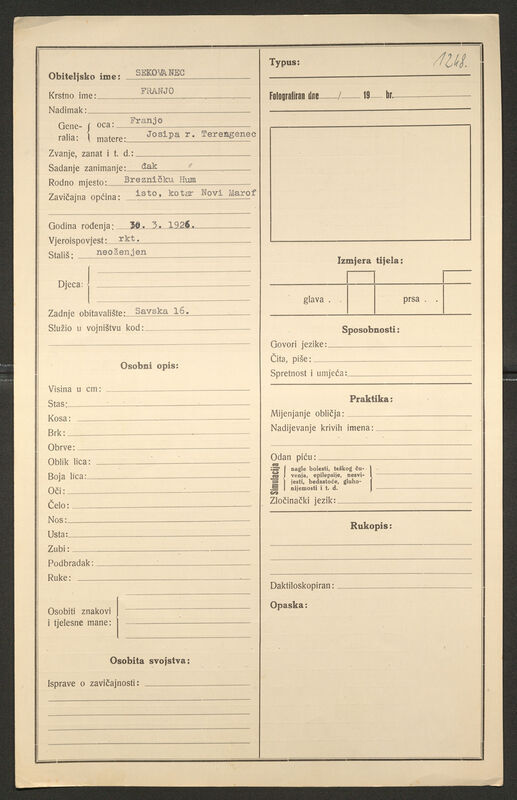 Obiteljsko ime: SEKOVANEC
Krstno ime: FRANJO
Nadimak:
Gene-
ralia:
oca: Franjo
matere: Josipa r. Terengenec
Zvanje, zanat i t. d.:
Sadanje zanimanje: đak
Rodno mjesto: Brezničku Hum
Zavičajna općina: isto, kotar Novi Marof
Godina rođenja: 30. 3. 1926.
Vjeroispovjest: rkt.
Stališ: neoženjen
Djeca:
Zadnje obitavalište: Savska 16.
Služio u vojništvu kod:
Osobni opis:
Visina u cm:
Stas:
Kosa:
Brk:
Obrve:
Oblik lica:
Boja lica:
Oči:
Čelo:
Nos:
Usta:
Zubi:
Podbradak:
Ruke:
Osobiti znakovi
i tjelesne mane:
Osobita svojstva:
Isprave o zavičajnosti:
Typus: 1248.
Fotografiran dne / 19 br.
Izmjera tijela:
glava . . prsa . .
Sposobnosti:
Govori jezike:
Čita, piše:
Spretnost i umjeća:
Praktika:
Mijenjanje obličja:
Nadijevanje krivih imena:
Odan piću:
Simulacija
nagle bolesti, teškog ču-
venja, epilepsije, nesvi-
jesti, bedastoće, gluho-
nijemosti i t. d.
Zločinački jezik:
Rukopis:
Daktiloskopiran:
Opaska: